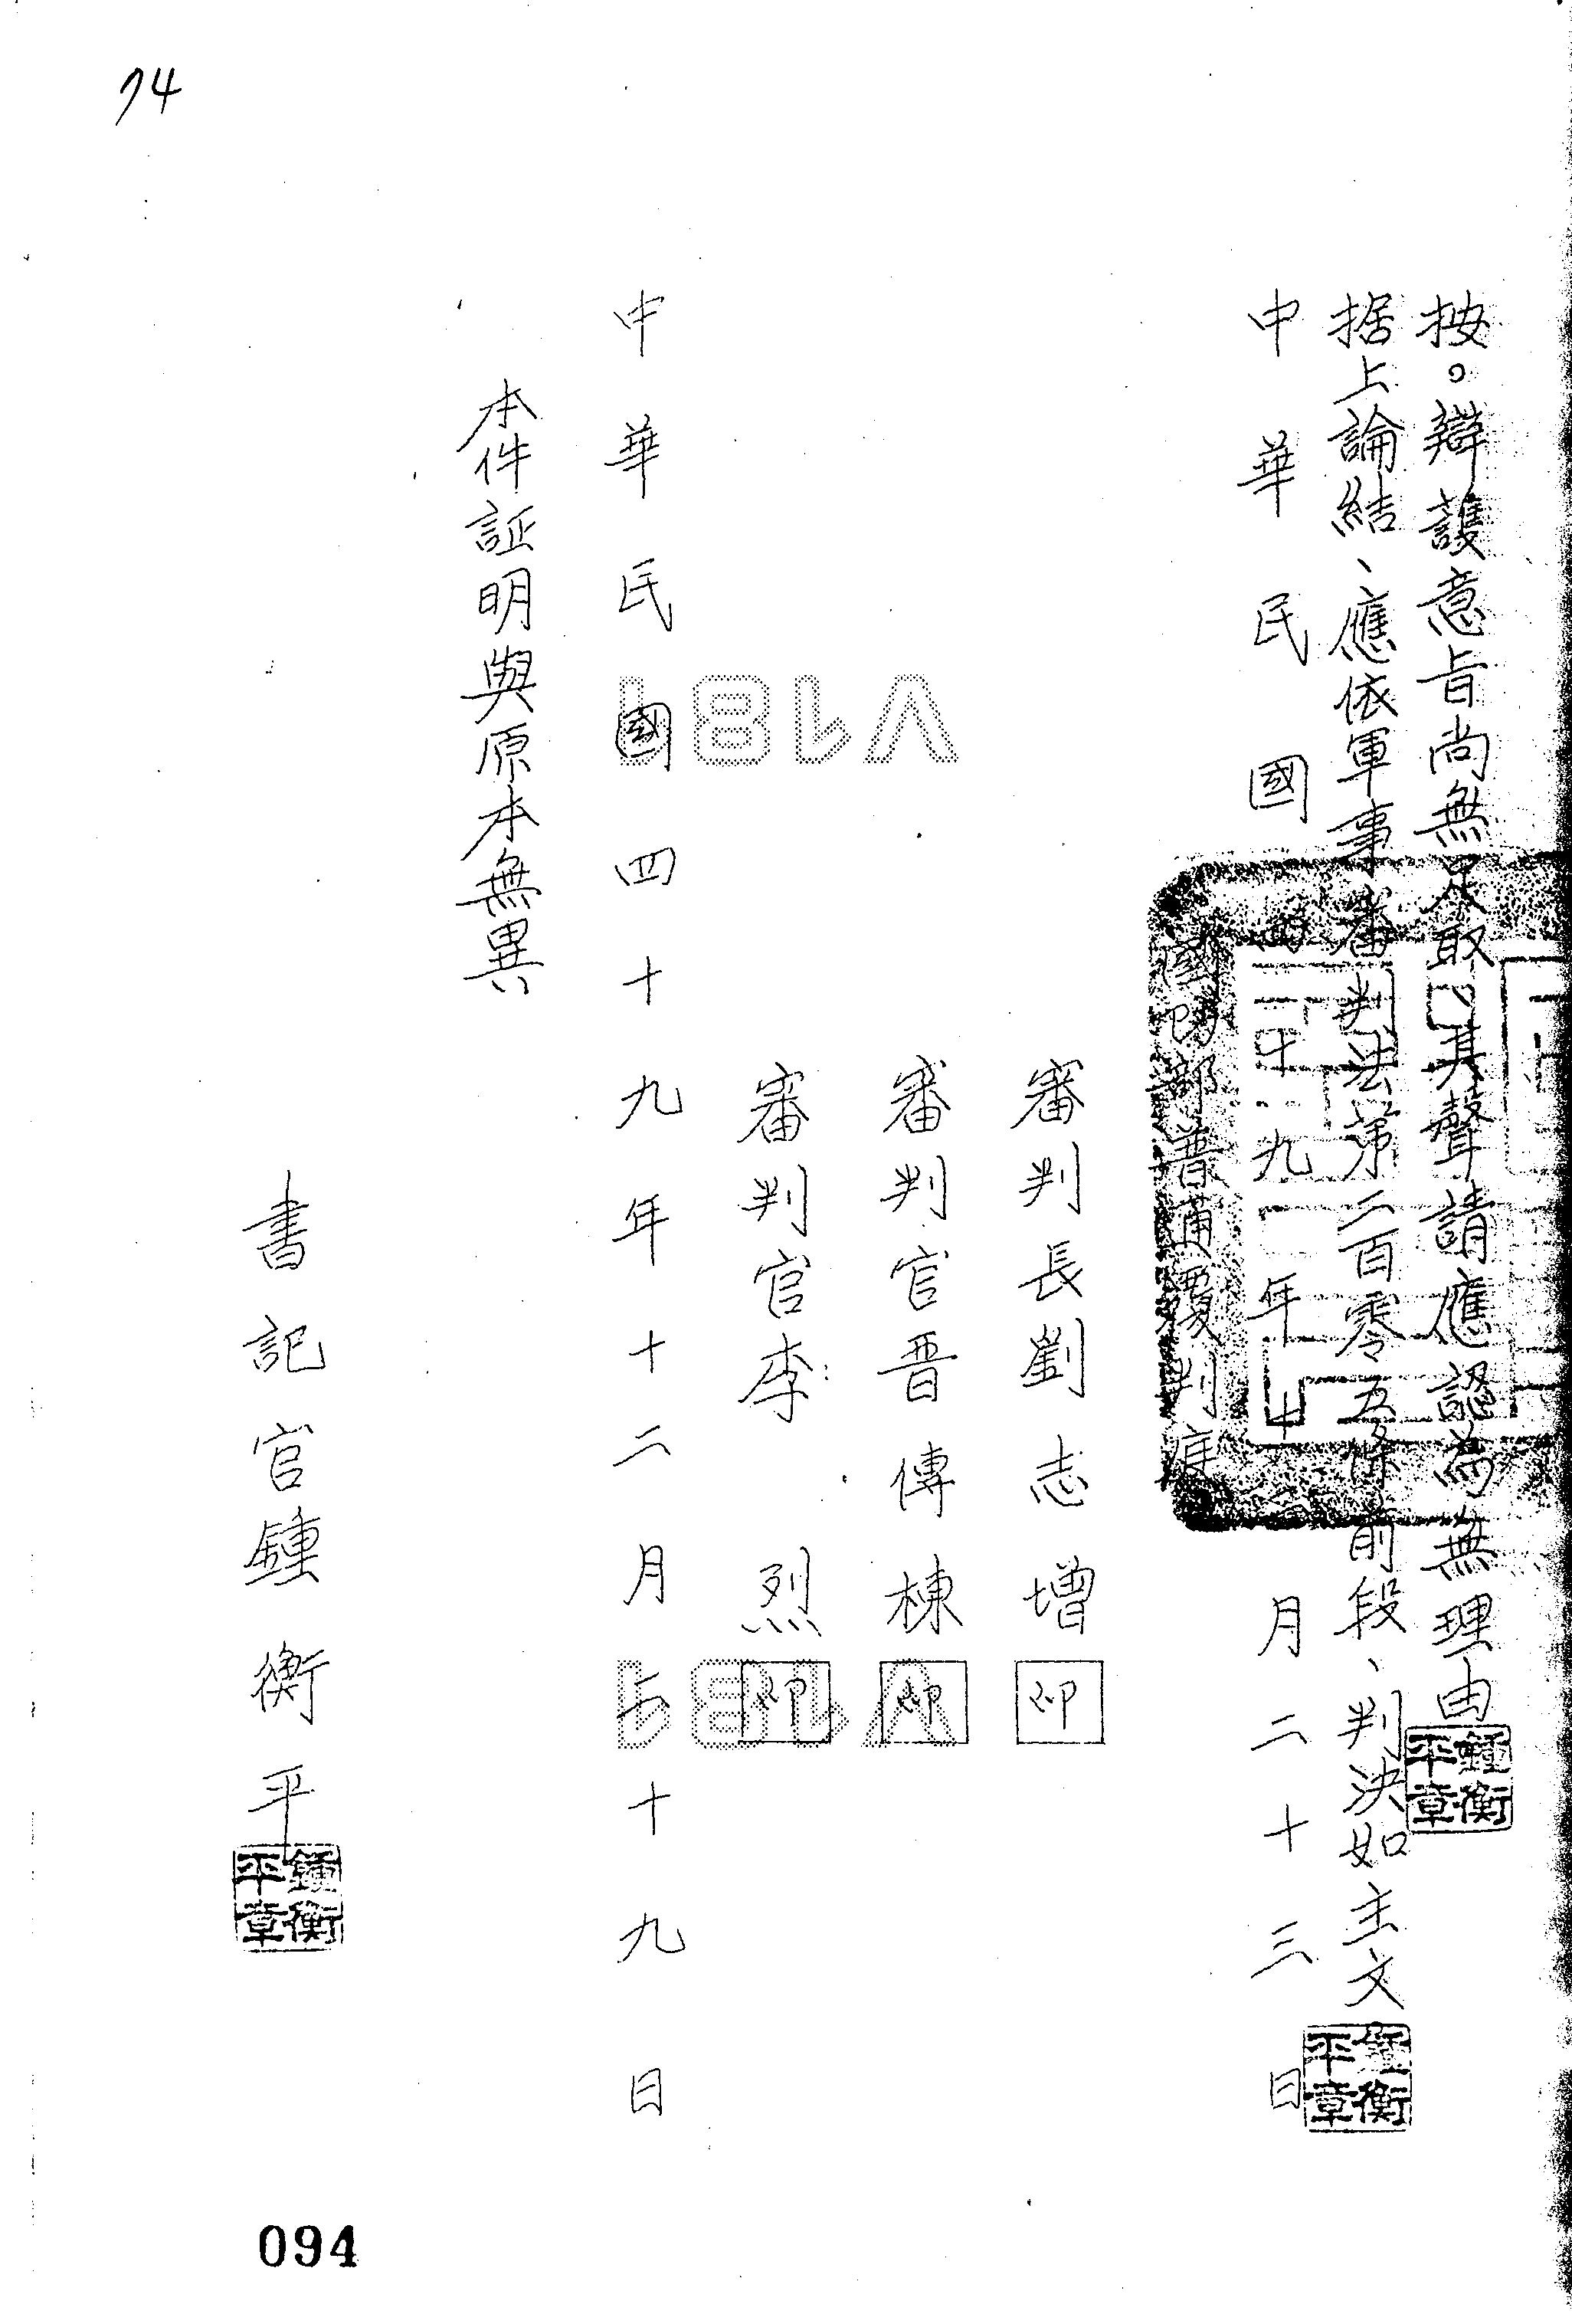 按。辯護意旨尚無足取、其聲請應認為無理由
据上論結、應依軍事審判法第二百零五條前段、判決如主文
中華民國四十九年十二月二十三日
國防部普通覆判庭
審判長劉志增 印
審判官晋傳棟 印
審判官李烈 印
中華民國四十九年十二月二十九日
本件証明與原本無異
書記官鍾衡平
鍾衡平章
鍾衡平章
鍾衡平章
74
V181
V181
094